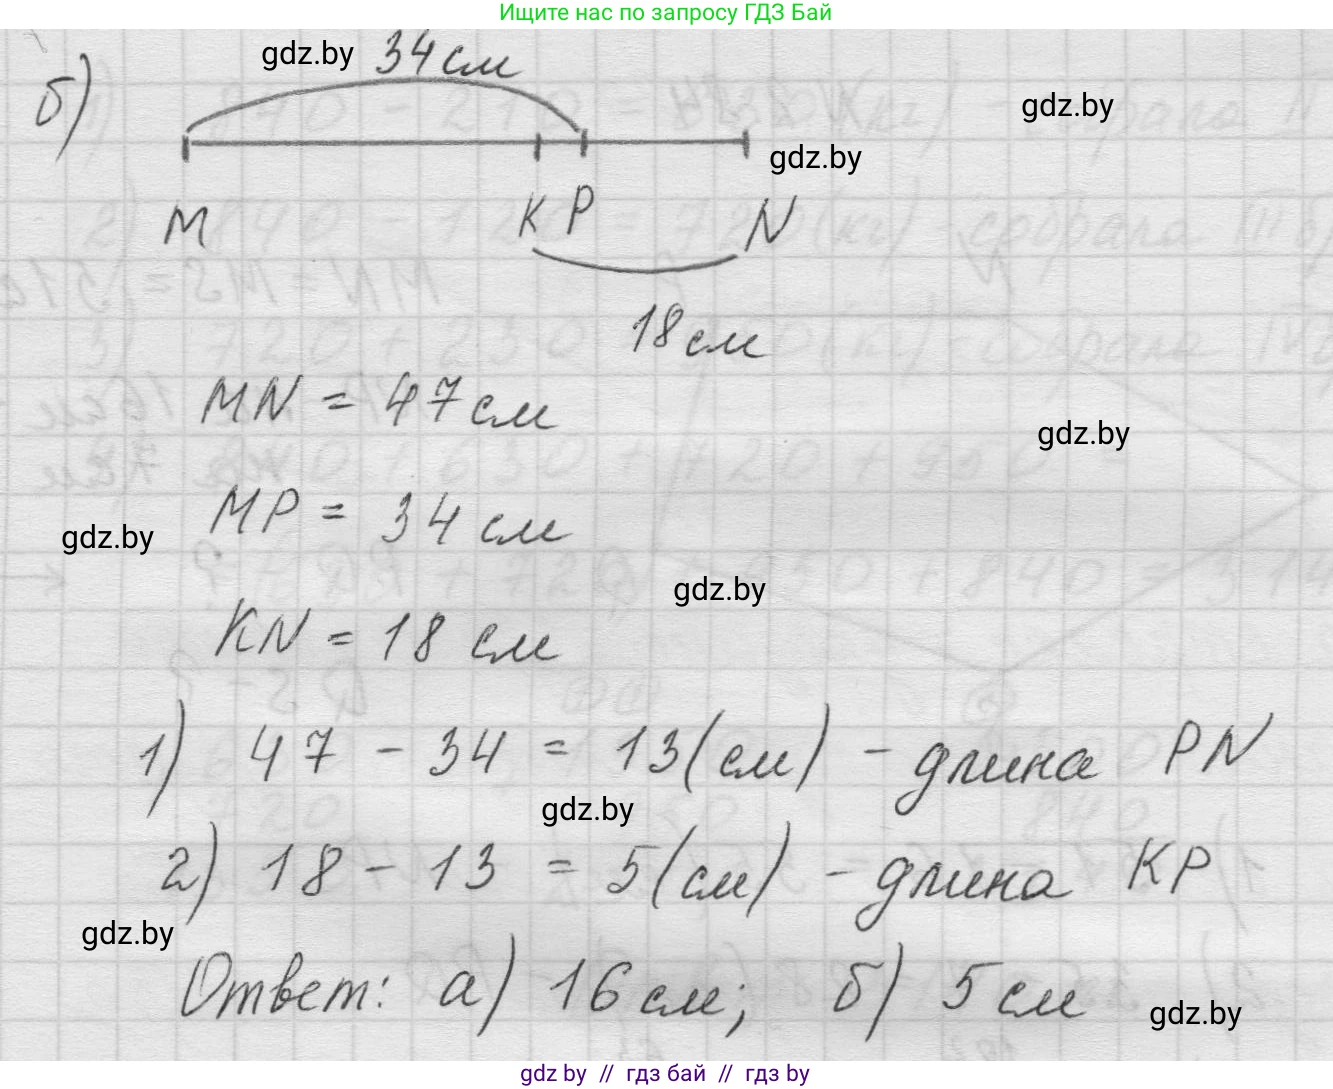 Ищите нас по запросу ГДЗ Бай
gdz.by 34 см
б)
gdz.by
gdz.by
M K P N
18 см
MN = 47 см
gdz.by
MP = 34 см
gdz.by
gdz.by
KN = 18 см
1) 47 - 34 = 13 (см) - длина PN
gdz.by
2) 18 - 13 = 5 (см) - длина KP
gdz.by
Ответ: а) 16 см; б) 5 см
gdz.by
gdz by // гдз бай // гдз by